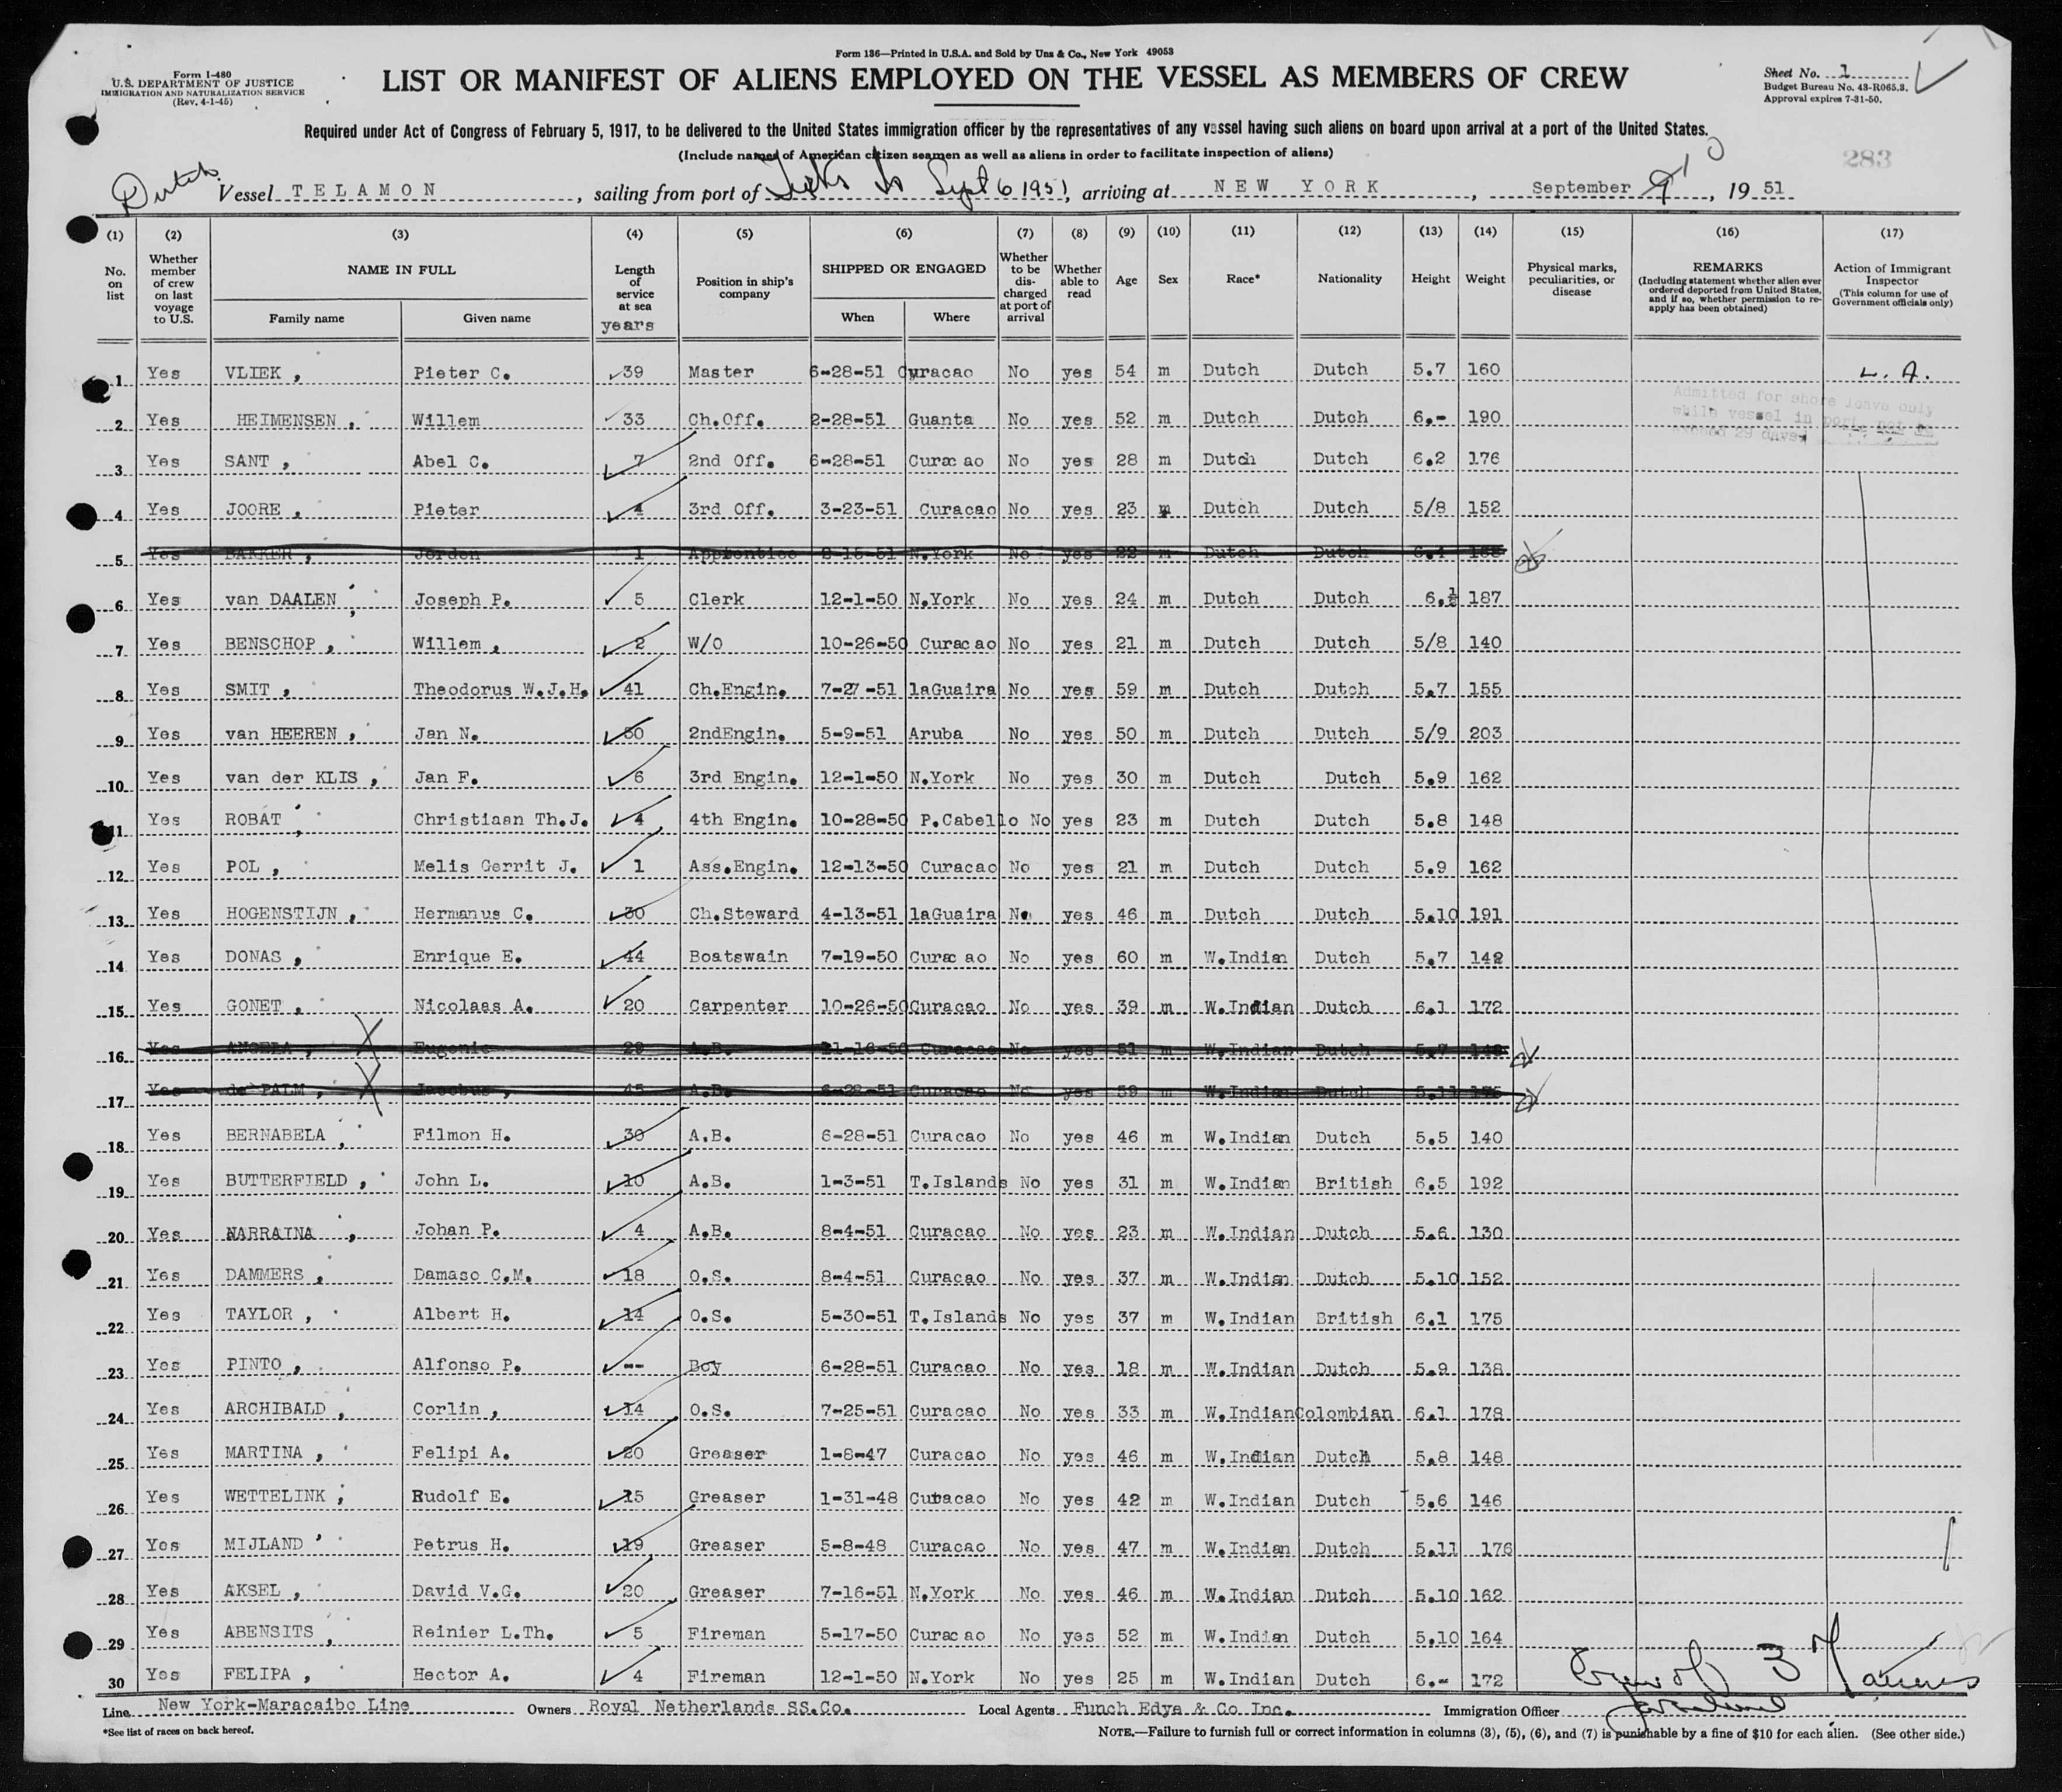 Form 136—Printed in U.S.A. and Sold by Unz & Co., New York 49053
Form I-480
U.S. DEPARTMENT OF JUSTICE
IMMIGRATION AND NATURALIZATION SERVICE
(Rev. 4-1-45)
LIST OR MANIFEST OF ALIENS EMPLOYED ON THE VESSEL AS MEMBERS OF CREW
Sheet No. 1
Budget Bureau No. 43-R065.3.
Approval expires 7-31-50.
Required under Act of Congress of February 5, 1917, to be delivered to the United States immigration officer by the representatives of any vessel having such aliens on board upon arrival at a port of the United States.
(Include names of American citizen seamen as well as aliens in order to facilitate inspection of aliens)
283
Dutch Vessel TELAMON, sailing from port of Sept 6 1951, arriving at NEW YORK, September 19 51
(1) (2) (3) (4) (5) (6) (7) (8) (9) (10) (11) (12) (13) (14) (15) (16) (17)
No. on list
Whether member of crew on last voyage to U.S.
NAME IN FULL
Family name
Given name
Length of service at sea
years
Position in ship's company
SHIPPED OR ENGAGED
When
Where
Whether to be discharged at port of arrival
Whether able to read
Age
Sex
Race*
Nationality
Height
Weight
Physical marks, peculiarities, or disease
REMARKS
(Including statement whether alien ever ordered deported from United States, and if so, whether permission to reapply has been obtained)
Action of Immigrant Inspector
(This column for use of Government officials only)
1 Yes VLIEK, Pieter C. 39 Master 6-28-51 Curacao No yes 54 m Dutch Dutch 5.7 160 L.A.
Admitted for shore leave only
while vessel in ports not to
exceed 29 days
2 Yes HEIMENSEN, Willem 33 Ch.Off. 2-28-51 Guanta No yes 52 m Dutch Dutch 6.- 190
3 Yes SANT, Abel C. 7 2nd Off. 6-28-51 Curacao No yes 28 m Dutch Dutch 6.2 176
4 Yes JOORE, Pieter 4 3rd Off. 3-23-51 Curacao No yes 23 m Dutch Dutch 5/8 152
5 Yes BAKKER, Jorden 1 Apprentice 8-15-51 N.York No yes 22 m Dutch Dutch 6.4
6 Yes van DAALEN, Joseph P. 5 Clerk 12-1-50 N.York No yes 24 m Dutch Dutch 6.½ 187
7 Yes BENSCHOP, Willem, 2 W/O 10-26-50 Curacao No yes 21 m Dutch Dutch 5/8 140
8 Yes SMIT, Theodorus W.J.H. 41 Ch.Engin. 7-27-51 laGuaira No yes 59 m Dutch Dutch 5.7 155
9 Yes van HEEREN, Jan N. 30 2ndEngin. 5-9-51 Aruba No yes 50 m Dutch Dutch 5/9 203
10 Yes van der KLIS, Jan F. 6 3rd Engin. 12-1-50 N.York No yes 30 m Dutch Dutch 5.9 162
11 Yes ROBAT, Christiaan Th.J. 4 4th Engin. 10-28-50 P.Cabello No yes 23 m Dutch Dutch 5.8 148
12 Yes POL, Melis Gerrit J. 1 Ass.Engin. 12-13-50 Curacao No yes 21 m Dutch Dutch 5.9 162
13 Yes HOGENSTIJN, Hermanus C. 30 Ch.Steward 4-13-51 laGuaira No yes 46 m Dutch Dutch 5.10 191
14 Yes DONAS, Enrique E. 44 Boatswain 7-19-50 Curacao No yes 60 m W.Indian Dutch 5.7 142
15 Yes GONET, Nicolaas A. 20 Carpenter 10-26-50 Curacao No yes 39 m W.Indian Dutch 6.1 172
16 Yes ANGELA, Eugenio 29 A.B. 11-16-50 Curacao No yes 51 m W.Indian Dutch 5.7
17 Yes de PALM, Jacobus, 45 A.B. 6-28-51 Curacao No yes 59 m W.Indian Dutch 5.11
18 Yes BERNABELA, Filmon H. 30 A.B. 6-28-51 Curacao No yes 46 m W.Indian Dutch 5.5 140
19 Yes BUTTERFIELD, John L. 10 A.B. 1-3-51 T.Islands No yes 31 m W.Indian British 6.5 192
20 Yes NARRAINA, Johan P. 4 A.B. 8-4-51 Curacao No yes 23 m W.Indian Dutch 5.6 130
21 Yes DAMMERS, Damaso C.M. 18 O.S. 8-4-51 Curacao No yes 37 m W.Indian Dutch 5.10 152
22 Yes TAYLOR, Albert H. 14 O.S. 5-30-51 T.Islands No yes 37 m W.Indian British 6.1 175
23 Yes PINTO, Alfonso P. -- Boy 6-28-51 Curacao No yes 18 m W.Indian Dutch 5.9 138
24 Yes ARCHIBALD, Corlin, 14 O.S. 7-25-51 Curacao No yes 33 m W.Indian Colombian 6.1 178
25 Yes MARTINA, Felipi A. 20 Greaser 1-8-47 Curacao No yes 46 m W.Indian Dutch 5.8 148
26 Yes WETTELINK, Rudolf E. 15 Greaser 1-31-48 Curacao No yes 42 m W.Indian Dutch 5.6 146
27 Yes MIJLAND' Petrus H. 19 Greaser 5-8-48 Curacao No yes 47 m W.Indian Dutch 5.11 176
28 Yes AKSEL, David V.G. 20 Greaser 7-16-51 N.York No yes 46 m W.Indian Dutch 5.10 162
29 Yes ABENSITS, Reinier L.Th. 5 Fireman 5-17-50 Curacao No yes 52 m W.Indian Dutch 5.10 164
30 Yes FELIPA, Hector A. 4 Fireman 12-1-50 N.York No yes 25 m W.Indian Dutch 6.- 172
Line New York-Maracaibo Line Owners Royal Netherlands SS.Co. Local Agents Funch Edye & Co Inc. Immigration Officer
*See list of races on back hereof.
NOTE.—Failure to furnish full or correct information in columns (3), (5), (6), and (7) is punishable by a fine of $10 for each alien. (See other side.)